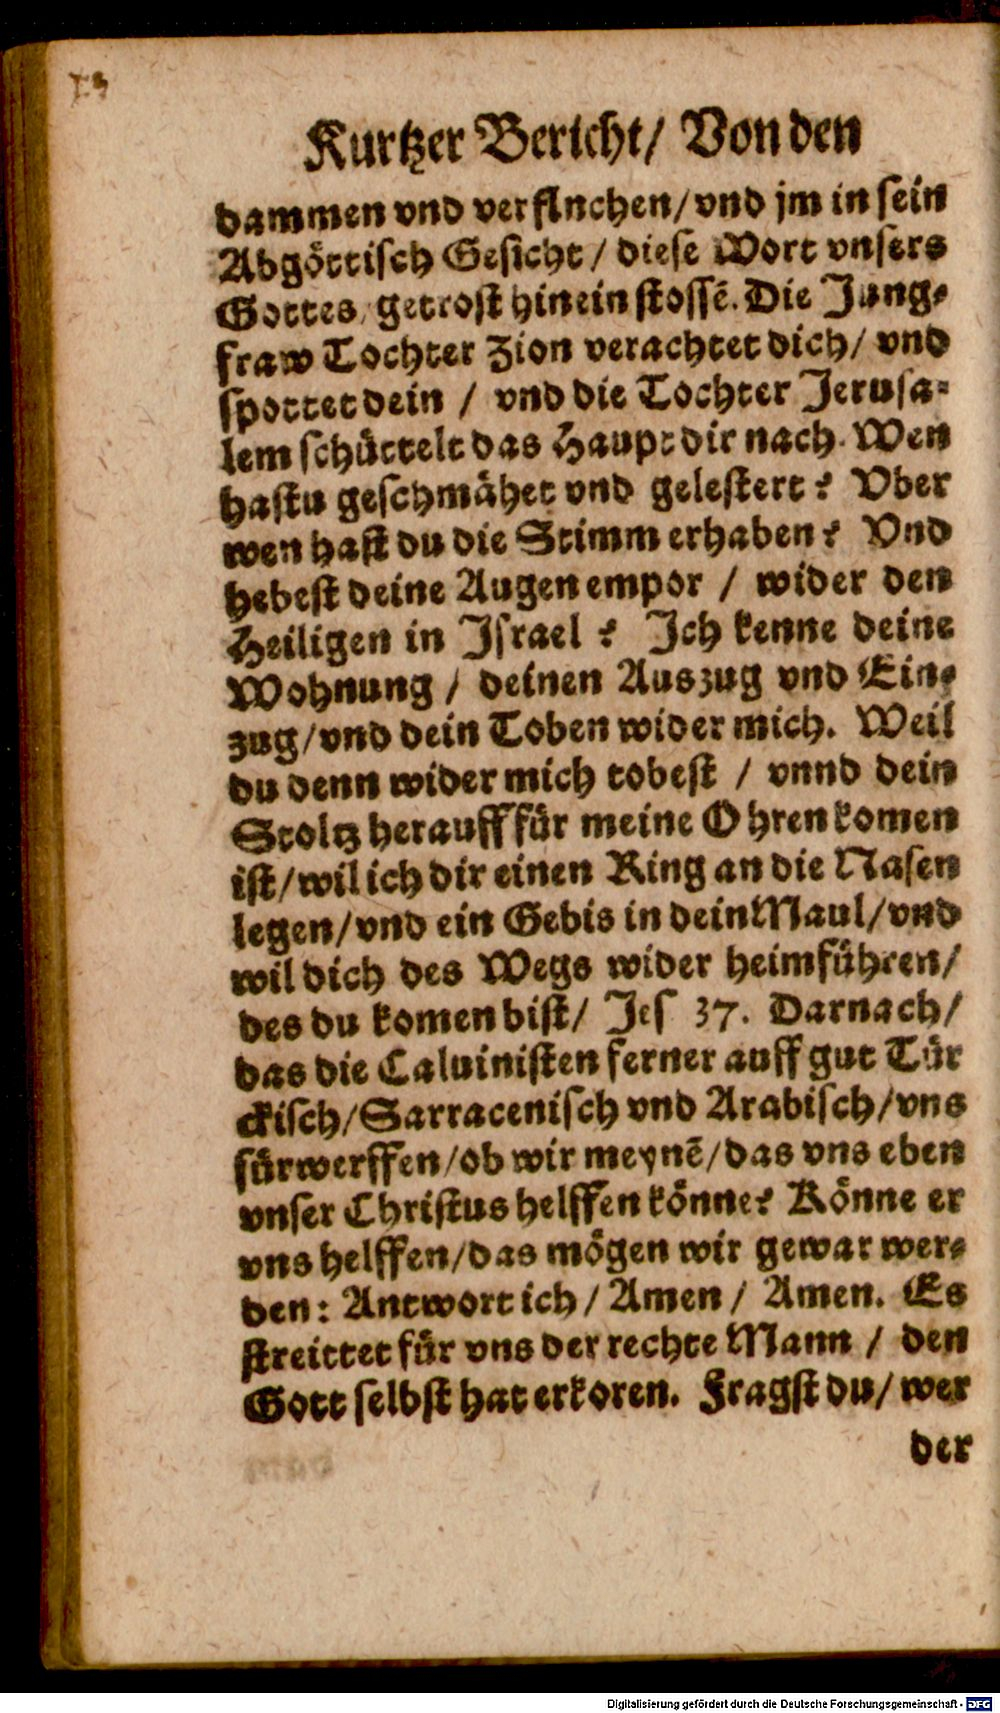 13
Kurtzer Bericht/ Von den
dammen vnd verflnchen/vnd jm in sein
Abgöttisch Gesicht / diese Wort vnsers
Gottes/ getrost hinein stossẽ. Die Jung-
fraw Tochter Zion verachtet dich/ vnd
spottet dein / vnd die Tochter Jerusa-
lem schüttelt das Haupt dir nach. Wen
hastu geschmähet vnd gelestert? Vber
wen hast du die Stimm erhaben? Vnd
hebest deine Augen empor / wider den
Heiligen in Israel? Ich kenne deine
Wohnung / deinen Auszug vnd Ein-
zug/vnd dein Toben wider mich. Weil
du denn wider mich tobest / vnnd dein
Stoltz herauff für meine Ohren komen
ist/wil ich dir einen Ring an die Nasen
legen/vnd ein Gebis in dein Maul/vnd
wil dich des Wegs wider heimführen/
des du komen bist/ Jes 37. Darnach/
das die Caluinisten ferner auff gut Tür
ckisch/Sarracenisch vnd Arabisch/vns
fürwerffen/ob wir meynẽ/das vns eben
vnser Christus helffen könne? Könne er
vns helffen/das mögen wir gewar wer-
den: Antwort ich/ Amen / Amen. Es
streittet für vns der rechte Mann / den
Gott selbst hat erkoren. Fragst du/ wer
der
Digitalisierung gefördert durch die Deutsche Forschungsgemeinschaft - DFG